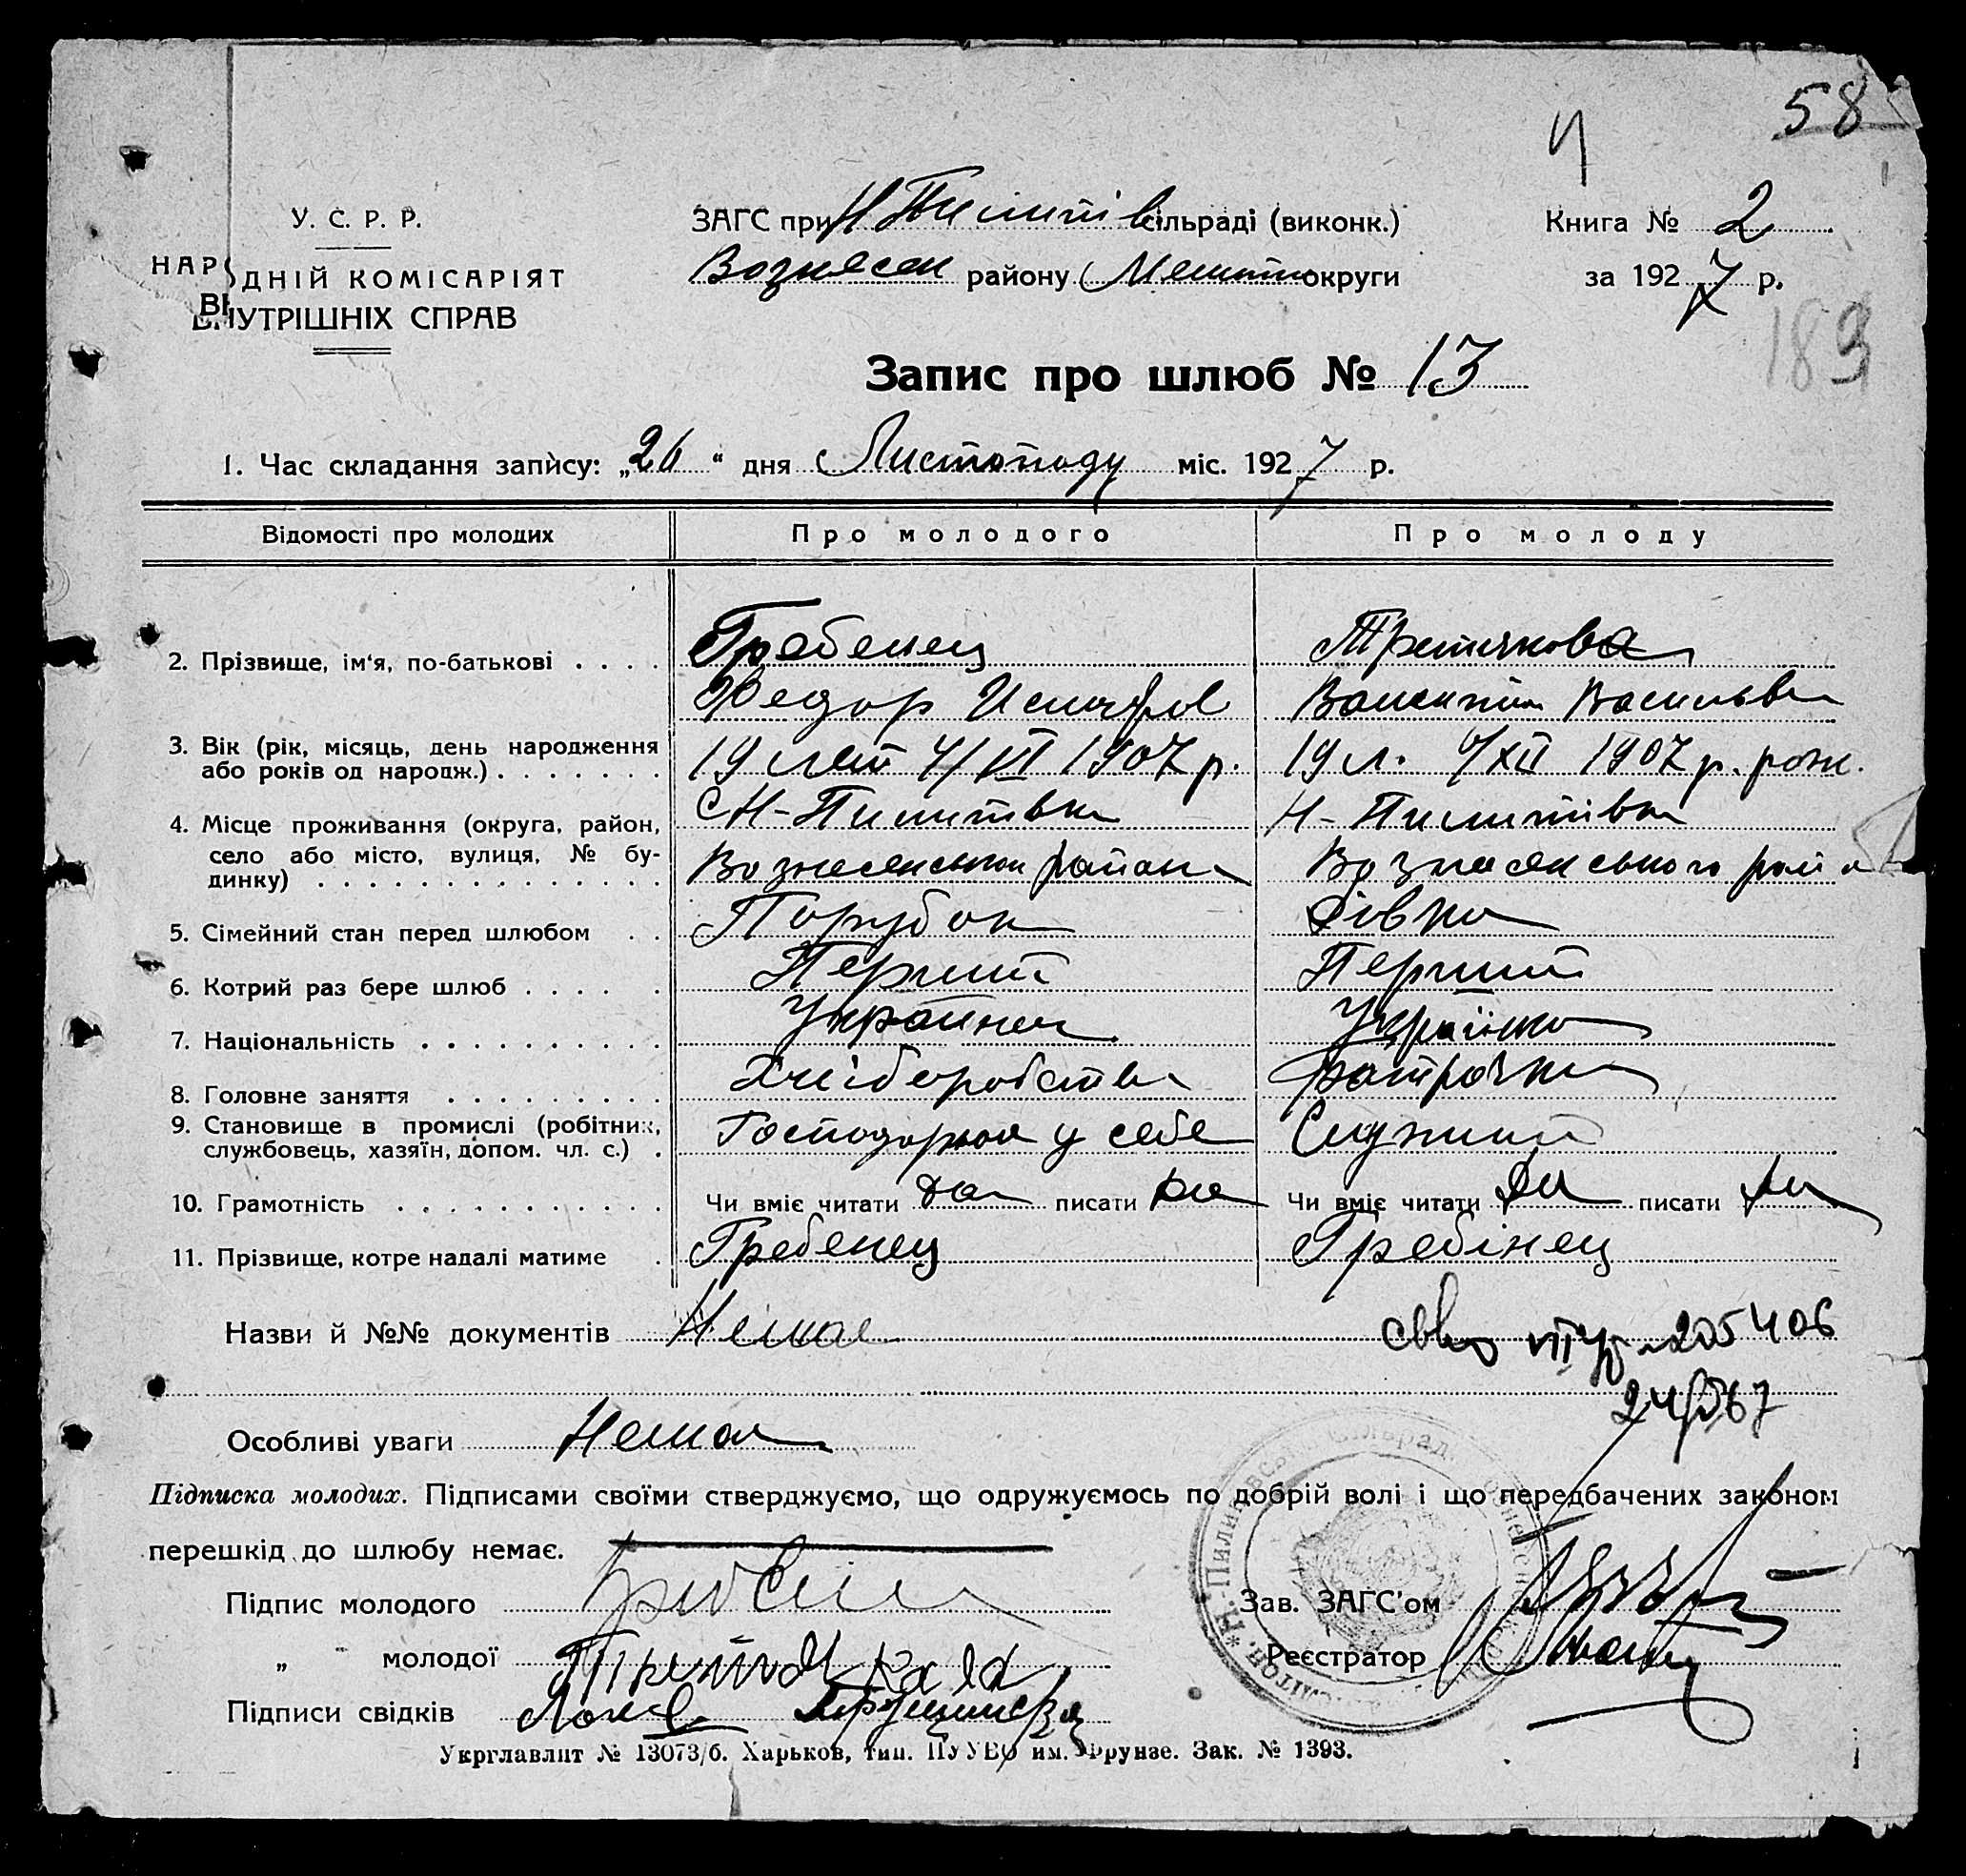 58
У. С. Р. Р.
НАРОДНІЙ КОМІСАРІЯТ
ВНУТРІШНІХ СПРАВ
ЗАГС при Н Пилипів сільраді (виконк.)
Вознесен району округи
Книга № 2
за 1927 р.
183
Запис про шлюб № 13
1. Час складання запису: „26“ дня Листопаду міс. 1927 р.
Відомості про молодих Про молодого Про молоду
2. Прізвище, ім‘я, по-батькові . . . . Гребенец Третякова
Федор Василівна
3. Вік (рік, місяць, день народження
або років од народж.) . . . . . . . 19 лет 4/VI 1907 р. 19 л. /XII 1907 р. рож.
4. Місце проживання (округа, район,
село або місто, вулиця, № бу-
динку) . . . . . . . . . . . . . . .
С Н-Пилипівка Н-Пилипівка
Вознесенськ району Вознесенського рай
5. Сімейний стан перед шлюбом . . Парубок Дівка
6. Котрий раз бере шлюб . . . . . Перший Перший
7. Національність . . . . . . . . . . Українец Українка
8. Головне заняття . . . . . . . . . Хліборобства
9. Становище в промислі (робітник,
службовець, хазяїн, допом. чл. с.) . Господарює у себе Служит
10. Грамотність . . . . . . . . . . . Чи вміє читати да писати да Чи вміє читати да писати да
11. Прізвище, котре надалі матиме . Гребенец Гребінец
Назви й №№ документів Немае 205406
Особливі уваги Немае
Підписка молодих. Підписами своїми стверджуємо, що одружуємось по добрій волі і що передбачених законом
перешкід до шлюбу немає.
Підпис молодого
Зав. ЗАГС’ом
„ молодої
Реєстратор
Підписи свідків
Укрглавліт № 13073/б. Харьков, тип. ПУУВО им. Фрунзе. Зак. № 1393.